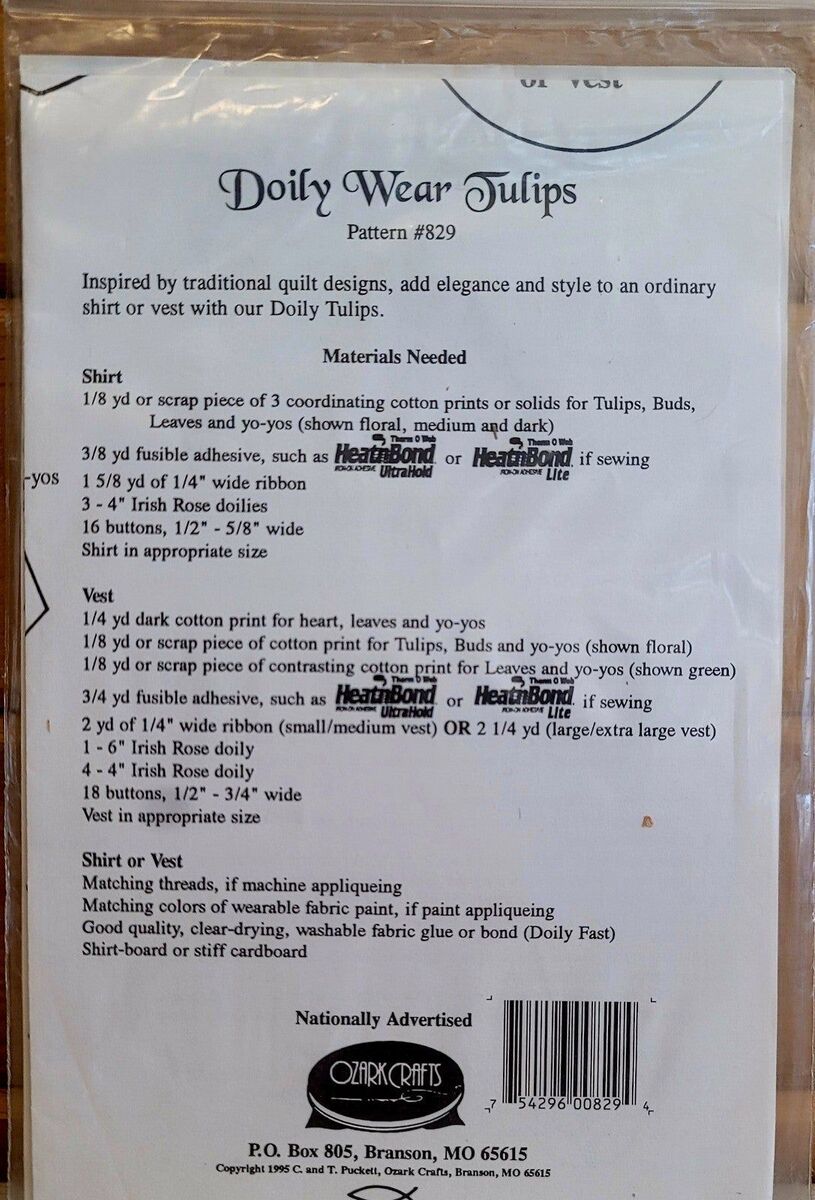 or Vest
Doily Wear Tulips
Pattern #829
Inspired by traditional quilt designs, add elegance and style to an ordinary
shirt or vest with our Doily Tulips.
Materials Needed
Shirt
1/8 yd or scrap piece of 3 coordinating cotton prints or solids for Tulips, Buds,
Leaves and yo-yos (shown floral, medium and dark)
3/8 yd fusible adhesive, such as Therm O Web HeatnBond IRON-ON ADHESIVE UltraHold or Therm O Web HeatnBond IRON-ON ADHESIVE Lite if sewing
-yos
1 5/8 yd of 1/4" wide ribbon
3 - 4" Irish Rose doilies
16 buttons, 1/2" - 5/8" wide
Shirt in appropriate size
Vest
1/4 yd dark cotton print for heart, leaves and yo-yos
1/8 yd or scrap piece of cotton print for Tulips, Buds and yo-yos (shown floral)
1/8 yd or scrap piece of contrasting cotton print for Leaves and yo-yos (shown green)
3/4 yd fusible adhesive, such as Therm O Web HeatnBond IRON-ON ADHESIVE UltraHold or Therm O Web HeatnBond IRON-ON ADHESIVE Lite if sewing
2 yd of 1/4" wide ribbon (small/medium vest) OR 2 1/4 yd (large/extra large vest)
1 - 6" Irish Rose doily
4 - 4" Irish Rose doily
18 buttons, 1/2" - 3/4" wide
Vest in appropriate size
Shirt or Vest
Matching threads, if machine appliqueing
Matching colors of wearable fabric paint, if paint appliqueing
Good quality, clear-drying, washable fabric glue or bond (Doily Fast)
Shirt-board or stiff cardboard
Nationally Advertised
OZARK CRAFTS
7 54296 00829 4
P.O. Box 805, Branson, MO 65615
Copyright 1995 C. and T. Puckett, Ozark Crafts, Branson, MO 65615